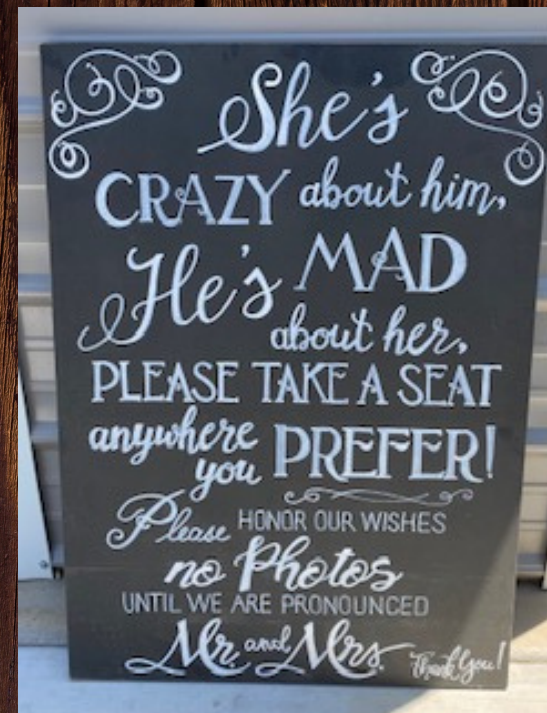 She's
CRAZY about him,
He's MAD
about her,
PLEASE TAKE A SEAT
anywhere
you PREFER!
Please HONOR OUR WISHES
no Photos
UNTIL WE ARE PRONOUNCED
Mr. and Mrs. Thank You!